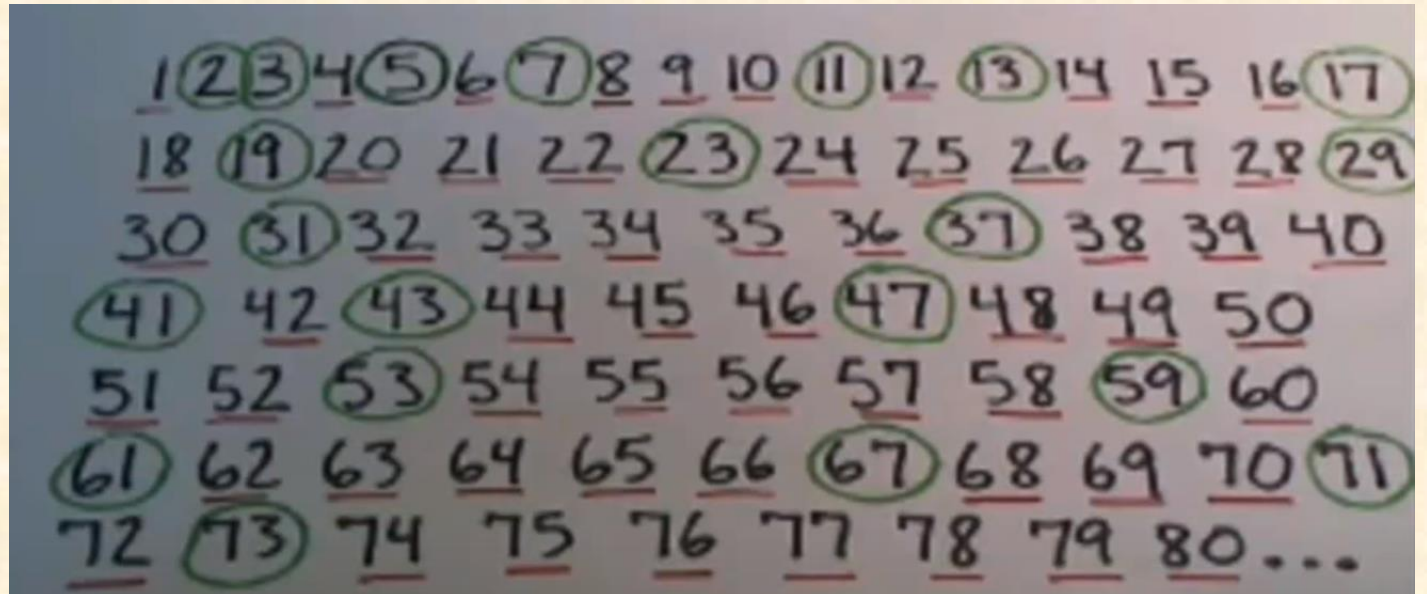 1 2 3 4 5 6 7 8 9 10 11 12 13 14 15 16 17
18 19 20 21 22 23 24 25 26 27 28 29
30 31 32 33 34 35 36 37 38 39 40
41 42 43 44 45 46 47 48 49 50
51 52 53 54 55 56 57 58 59 60
61 62 63 64 65 66 67 68 69 70 71
72 73 74 75 76 77 78 79 80...